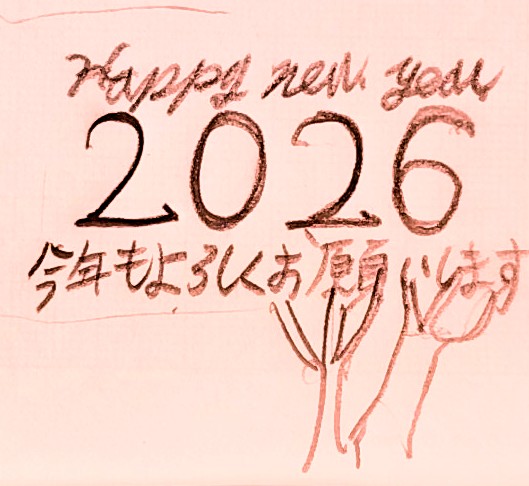 Happy new year
2026
今年もよろしくお願いします